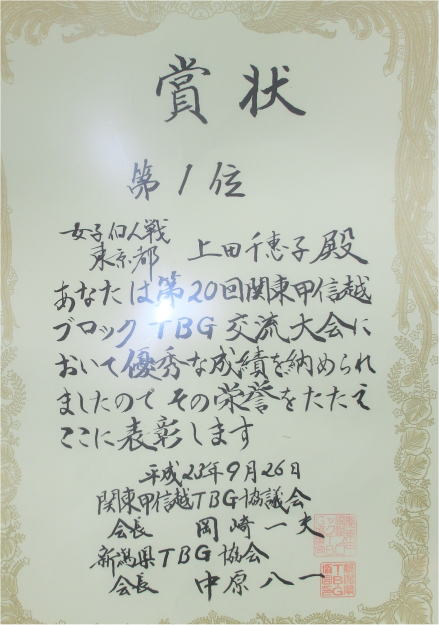 賞状
第1位
女子個人戦
東京都 上田千恵子殿
あなたは第20回関東甲信越
ブロックTBG交流大会に
おいて優秀な成績を納められ
ましたので その栄誉をたたえ
ここに表彰します
平成23年9月26日
関東甲信越TBG協議会
会長 岡崎一夫
新潟県TBG協会
会長 中原八一